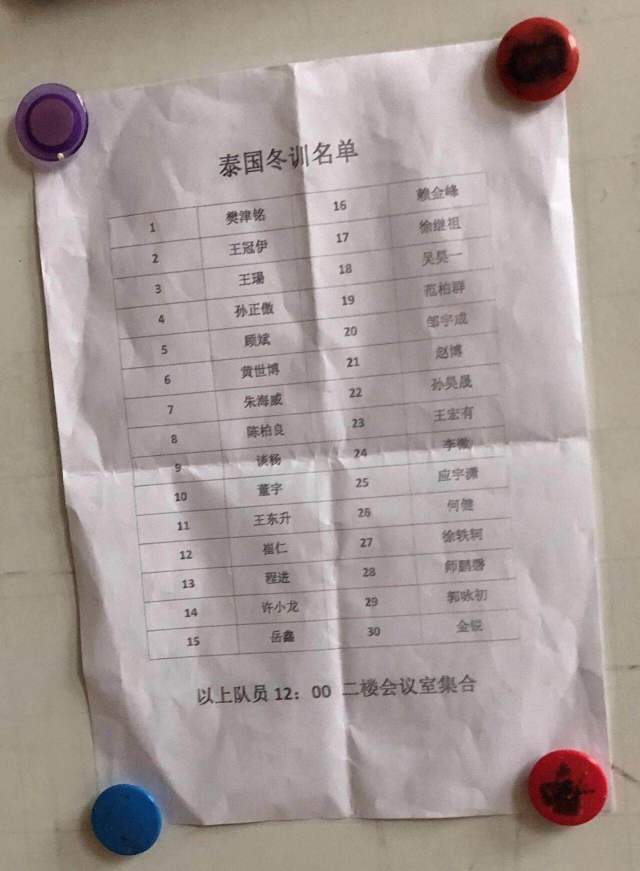 泰国冬训名单
1 樊津铭 16 赖金峰
2 王冠伊 17 徐继祖
3 王瑒 18 吴昊一
4 孙正傲 19 范柏群
5 顾斌 20 邹宇成
6 黄世博 21 赵博
7 朱海威 22 孙昊晟
8 陈柏良 23 王宏有
9 谈杨 24 李微
10 董宇 25 应宇潇
11 王东升 26 何健
12 崔仁 27 徐轶轲
13 程进 28 师鹏
14 许小龙 29 郭咏初
15 岳鑫 30 金锐
以上队员 12：00 二楼会议室集合